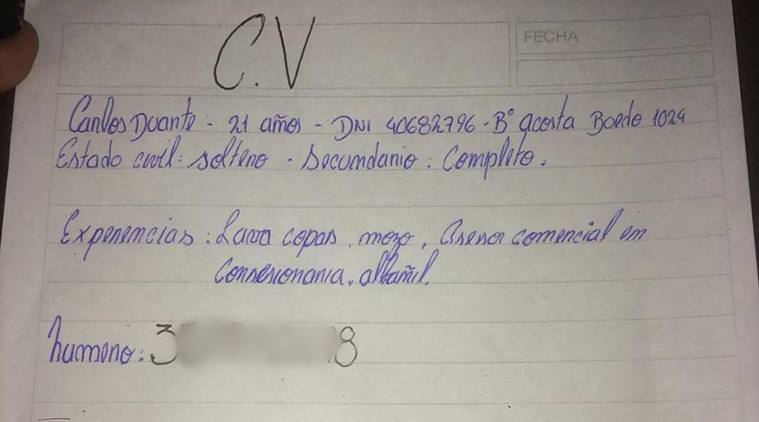 FECHA
C.V
Carlos Duarte - 21 años - DNI 40682796 - B° acosta Boedo 1024
Estado civil: soltero - Secundario: Completo.
Experiencias: Lava copas, mozo, asesor comercial en
Consesionaria, albañil.
numero: 3 8